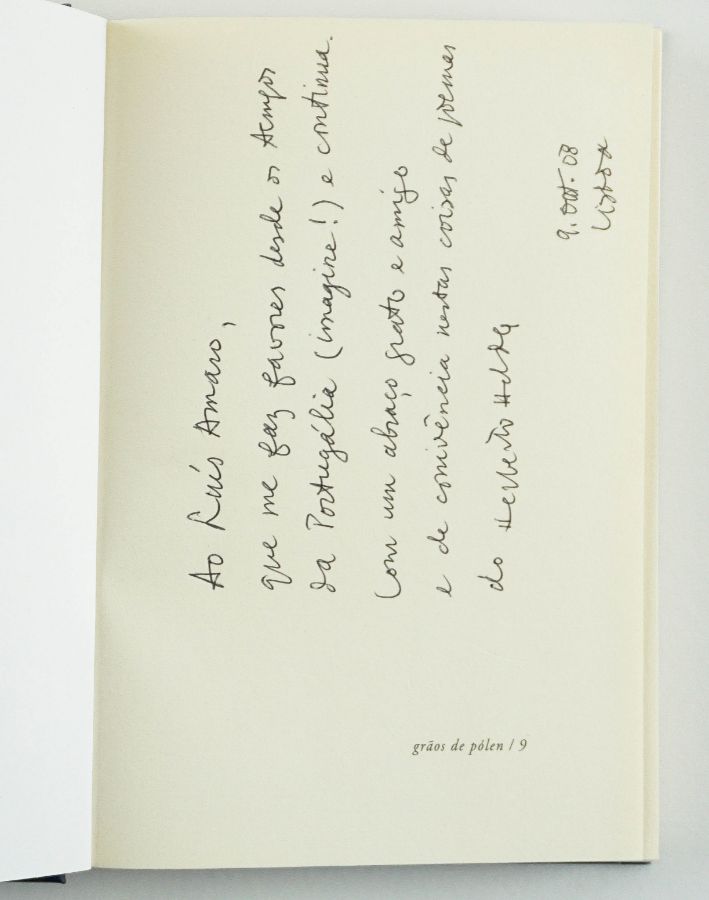 Ao Luís Amaro,
que me faz favores desde os tempos
da Portugália (imagine!) e continua.
Com um abraço grato e amigo
e de conivência nestas coisas de poemas
do Herberto Helder
9. out. 08
Lisboa
grãos de pólen / 9